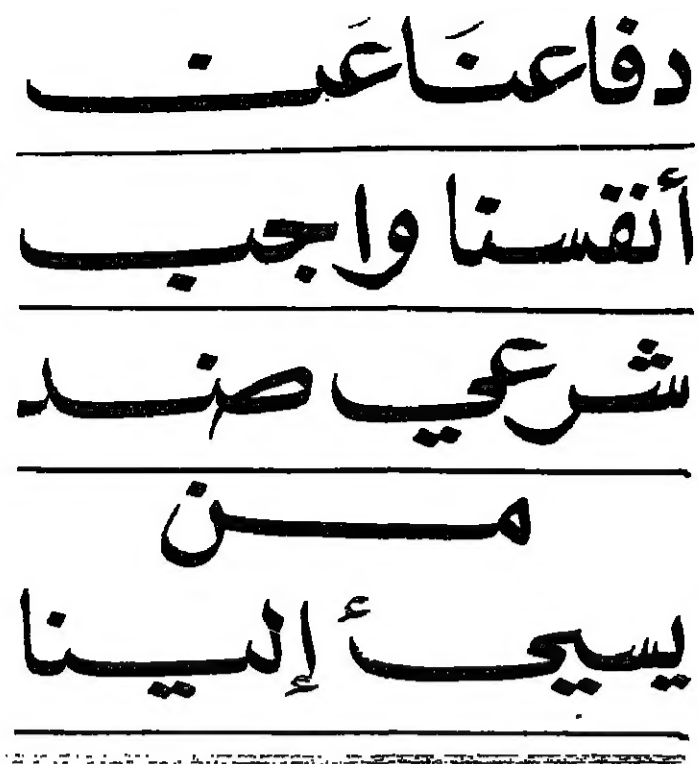 دفاعنَا عَن
أنفسنا واجب
شرعي ضد
من
يسيئ إلينا